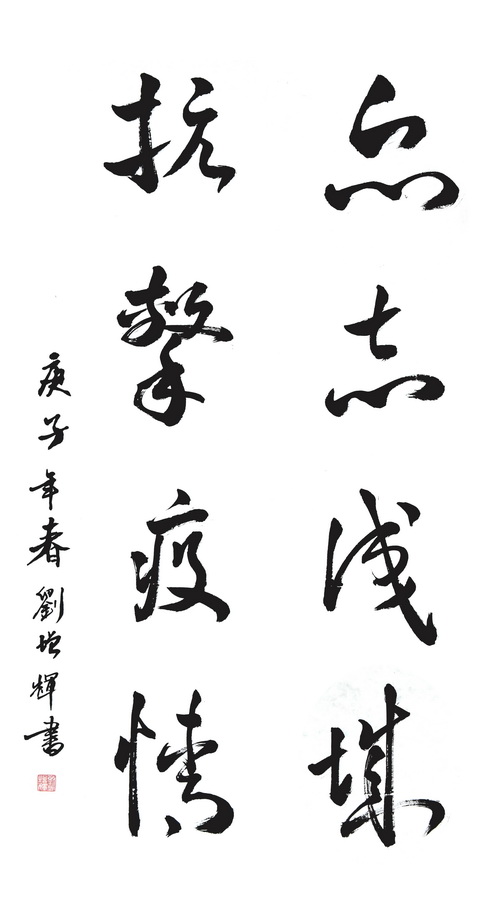 众志成城
抗擊疫情
庚子年春劉增輝書